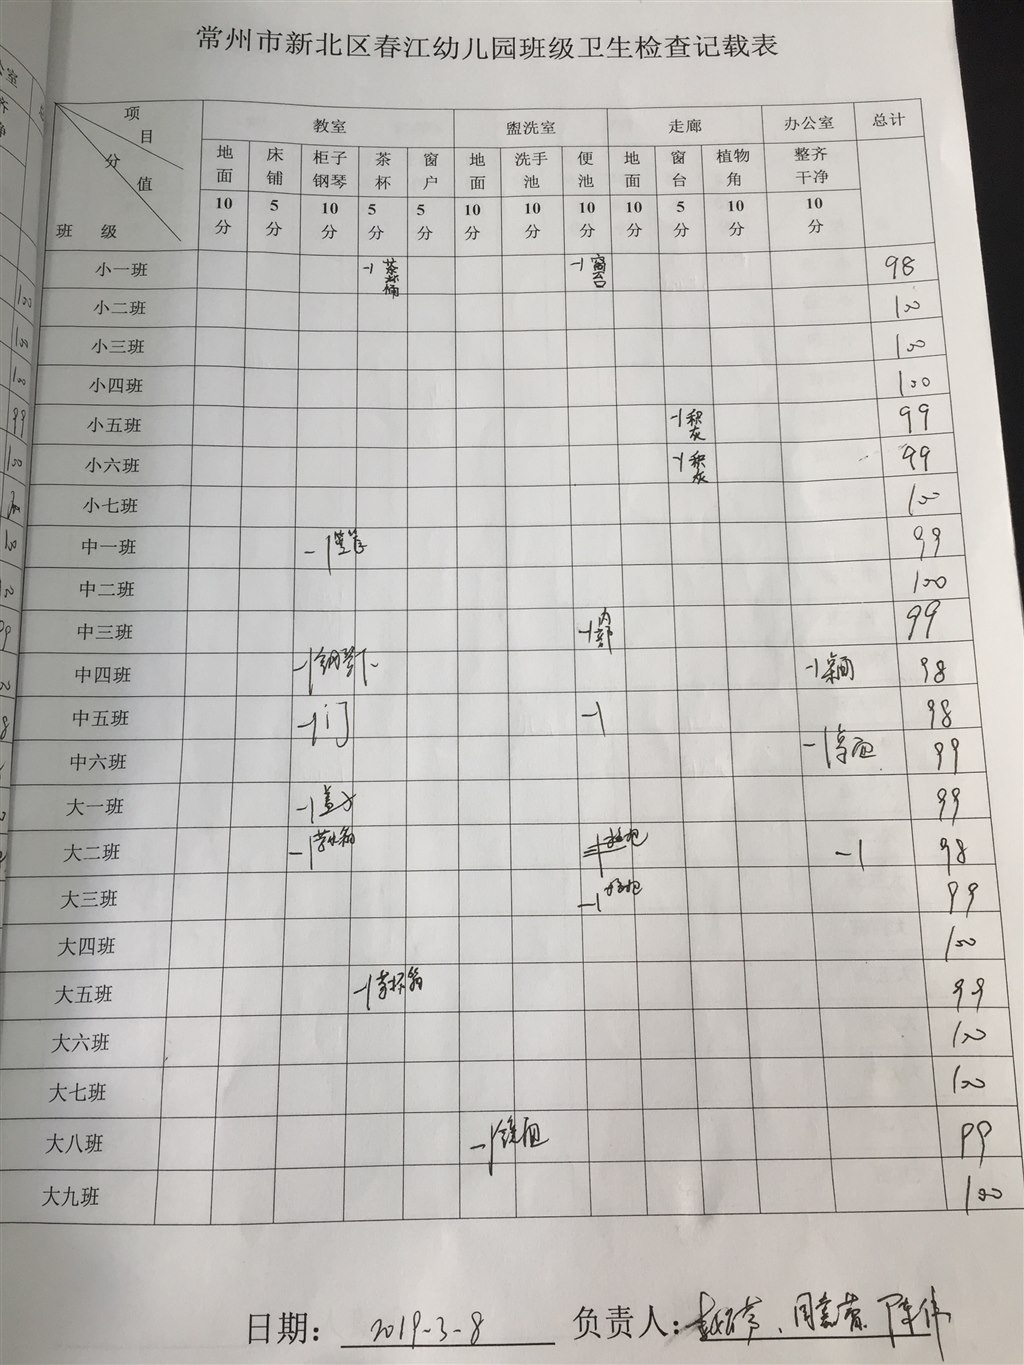 常州市新北区春江幼儿园班级卫生检查记载表
项目 分值 班级 教室 盥洗室 走廊 办公室 总计
地面 床铺 柜子钢琴 茶杯 窗户 地面 洗手池 便池 地面 窗台 植物角 整齐干净
10分 5分 10分 5分 5分 10分 10分 10分 10分 5分 10分 10分
小一班 -1 茶杯桶 -1 窗台 98
小二班 100
小三班 100
小四班 100
小五班 -1 积灰 99
小六班 -1 积灰 99
小七班 100
中一班 -1 99
中二班 100
中三班 -1 内部 99
中四班 -1 钢琴下 -1 桌面 98
中五班 -1 门 -1 98
中六班 -1 桌面 99
大一班 -1 盖子 99
大二班 -1 -1 98
大三班 -1 99
大四班 100
大五班 -1 茶杯箱 99
大六班 100
大七班 100
大八班 -1 镜面 99
大九班 100
日期: 2019-3-8 负责人: